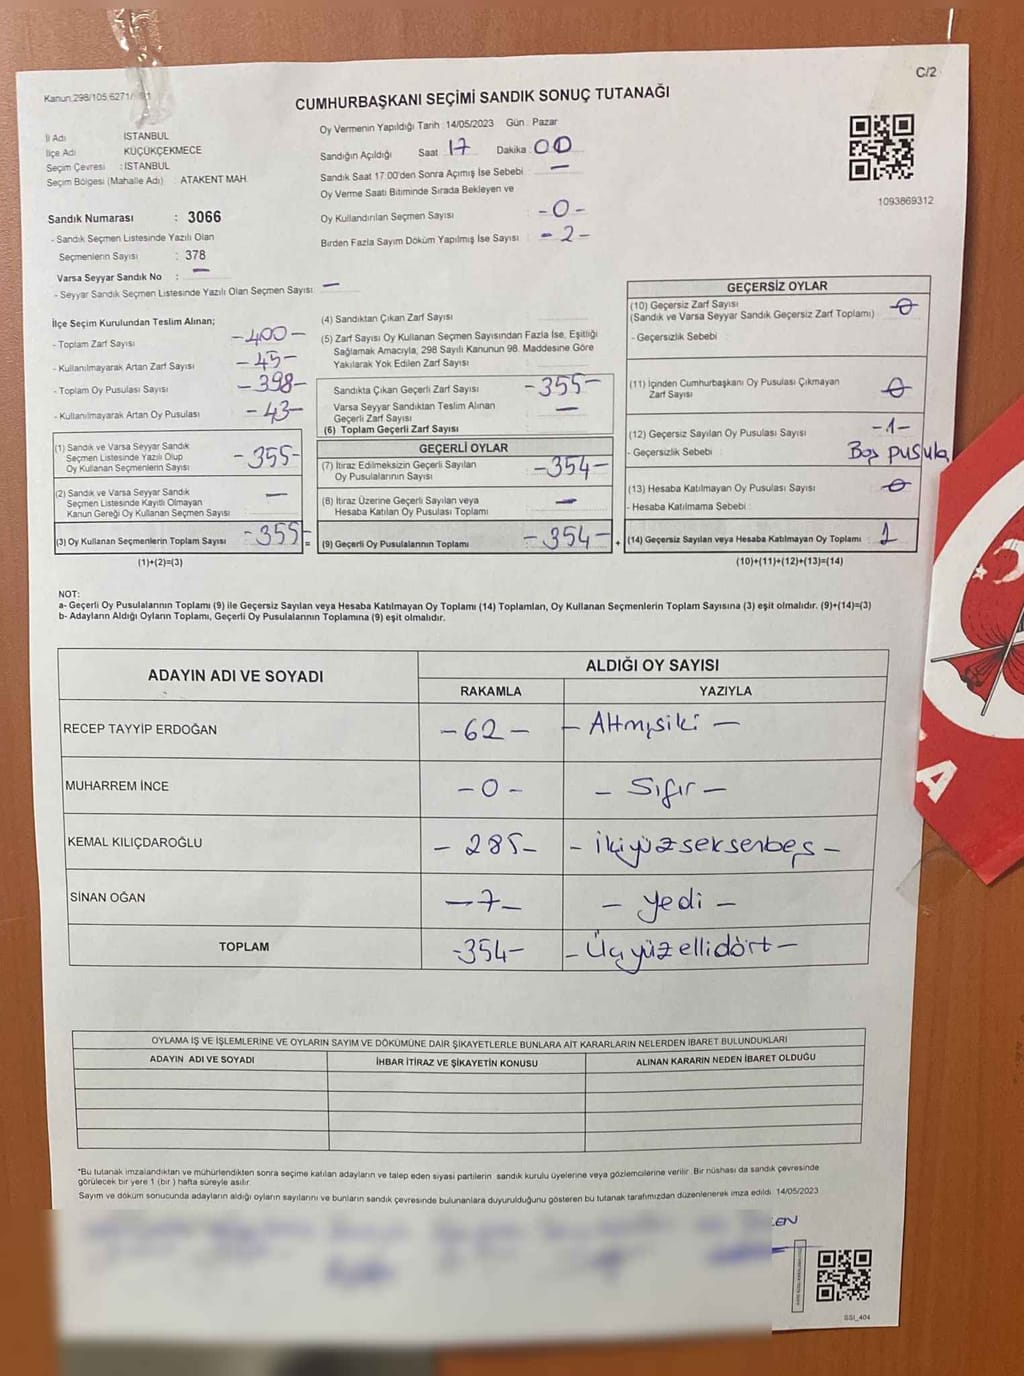 C/2
Kanun 298/105,6271/
CUMHURBAŞKANI SEÇİMİ SANDIK SONUÇ TUTANAĞI
İl Adı : İSTANBUL
İlçe Adı : KÜÇÜKÇEKMECE
Seçim Çevresi : İSTANBUL
Seçim Bölgesi (Mahalle Adı) : ATAKENT MAH.
Sandık Numarası : 3066
- Sandık Seçmen Listesinde Yazılı Olan
Seçmenlerin Sayısı : 378
Varsa Seyyar Sandık No : —
- Seyyar Sandık Seçmen Listesinde Yazılı Olan Seçmen Sayısı —
Oy Vermenin Yapıldığı Tarih : 14/05/2023 Gün : Pazar
Sandığın Açıldığı Saat 17 Dakika : 00
Sandık Saat 17:00'den Sonra Açımış İse Sebebi : —
Oy Verme Saati Bitiminde Sırada Bekleyen ve
Oy Kullandırılan Seçmen Sayısı : -0-
Birden Fazla Sayım Döküm Yapılmış İse Sayısı : -2-
1093869312
İlçe Seçim Kurulundan Teslim Alınan;
- Toplam Zarf Sayısı -400-
- Kullanılmayarak Artan Zarf Sayısı -45-
- Toplam Oy Pusulası Sayısı -398-
- Kullanılmayarak Artan Oy Pusulası -43-
(1) Sandık ve Varsa Seyyar Sandık
Seçmen Listesinde Yazılı Olup
Oy Kullanan Seçmenlerin Sayısı -355-
(2) Sandık ve Varsa Seyyar Sandık
Seçmen Listesinde Kayıtlı Olmayan
Kanun Gereği Oy Kullanan Seçmen Sayısı : —
(3) Oy Kullanan Seçmenlerin Toplam Sayısı -355- =
(1)+(2)=(3)
(4) Sandıktan Çıkan Zarf Sayısı :
(5) Zarf Sayısı Oy Kullanan Seçmen Sayısından Fazla İse, Eşitliği
Sağlamak Amacıyla; 298 Sayılı Kanunun 98. Maddesine Göre
Yakılarak Yok Edilen Zarf Sayısı :
Sandıkta Çıkan Geçerli Zarf Sayısı -355-
Varsa Seyyar Sandıktan Teslim Alınan
Geçerli Zarf Sayısı —
(6) Toplam Geçerli Zarf Sayısı
GEÇERLİ OYLAR
(7) İtiraz Edilmeksizin Geçerli Sayılan
Oy Pusulalarının Sayısı -354-
(8) İtiraz Üzerine Geçerli Sayılan veya
Hesaba Katılan Oy Pusulası Toplamı —
(9) Geçerli Oy Pusulalarının Toplamı -354- +
GEÇERSİZ OYLAR
(10) Geçersiz Zarf Sayısı
(Sandık ve Varsa Seyyar Sandık Geçersiz Zarf Toplamı) : 0
- Geçersizlik Sebebi :
(11) İçinden Cumhurbaşkanı Oy Pusulası Çıkmayan
Zarf Sayısı 0
(12) Geçersiz Sayılan Oy Pusulası Sayısı : -1-
- Geçersizlik Sebebi : Boş pusula
(13) Hesaba Katılmayan Oy Pusulası Sayısı : 0
- Hesaba Katılmama Sebebi :
(14) Geçersiz Sayılan veya Hesaba Katılmayan Oy Toplamı : 1
(10)+(11)+(12)+(13)=(14)
NOT:
a- Geçerli Oy Pusulalarının Toplamı (9) ile Geçersiz Sayılan veya Hesaba Katılmayan Oy Toplamı (14) Toplamları, Oy Kullanan Seçmenlerin Toplam Sayısına (3) eşit olmalıdır. (9)+(14)=(3)
b- Adayların Aldığı Oyların Toplamı, Geçerli Oy Pusulalarının Toplamına (9) eşit olmalıdır.
ADAYIN ADI VE SOYADI ALDIĞI OY SAYISI
RAKAMLA YAZIYLA
RECEP TAYYİP ERDOĞAN -62- - Altmışiki -
MUHARREM İNCE -0- - Sıfır -
KEMAL KILIÇDAROĞLU - 285- - İkiyüzseksenbeş -
SİNAN OĞAN -7- - yedi -
TOPLAM -354- - Üçyüzellidört -
A
OYLAMA İŞ VE İŞLEMLERİNE VE OYLARIN SAYIM VE DÖKÜMÜNE DAİR ŞİKAYETLERLE BUNLARA AİT KARARLARIN NELERDEN İBARET BULUNDUKLARI
ADAYIN ADI VE SOYADI İHBAR İTİRAZ VE ŞİKAYETİN KONUSU ALINAN KARARIN NEDEN İBARET OLDUĞU
*Bu tutanak imzalandıktan ve mühürlendikten sonra seçime katılan adayların ve talep eden siyasi partilerin sandık kurulu üyelerine veya gözlemcilerine verilir. Bir nüshası da sandık çevresinde
görülecek bir yere 1 (bir) hafta süreyle asılır.
Sayım ve döküm sonucunda adayların aldığı oyların sayılarını ve bunların sandık çevresinde bulunanlara duyurulduğunu gösteren bu tutanak tarafımızdan düzenlenerek imza edildi. 14/05/2023
SSI_404